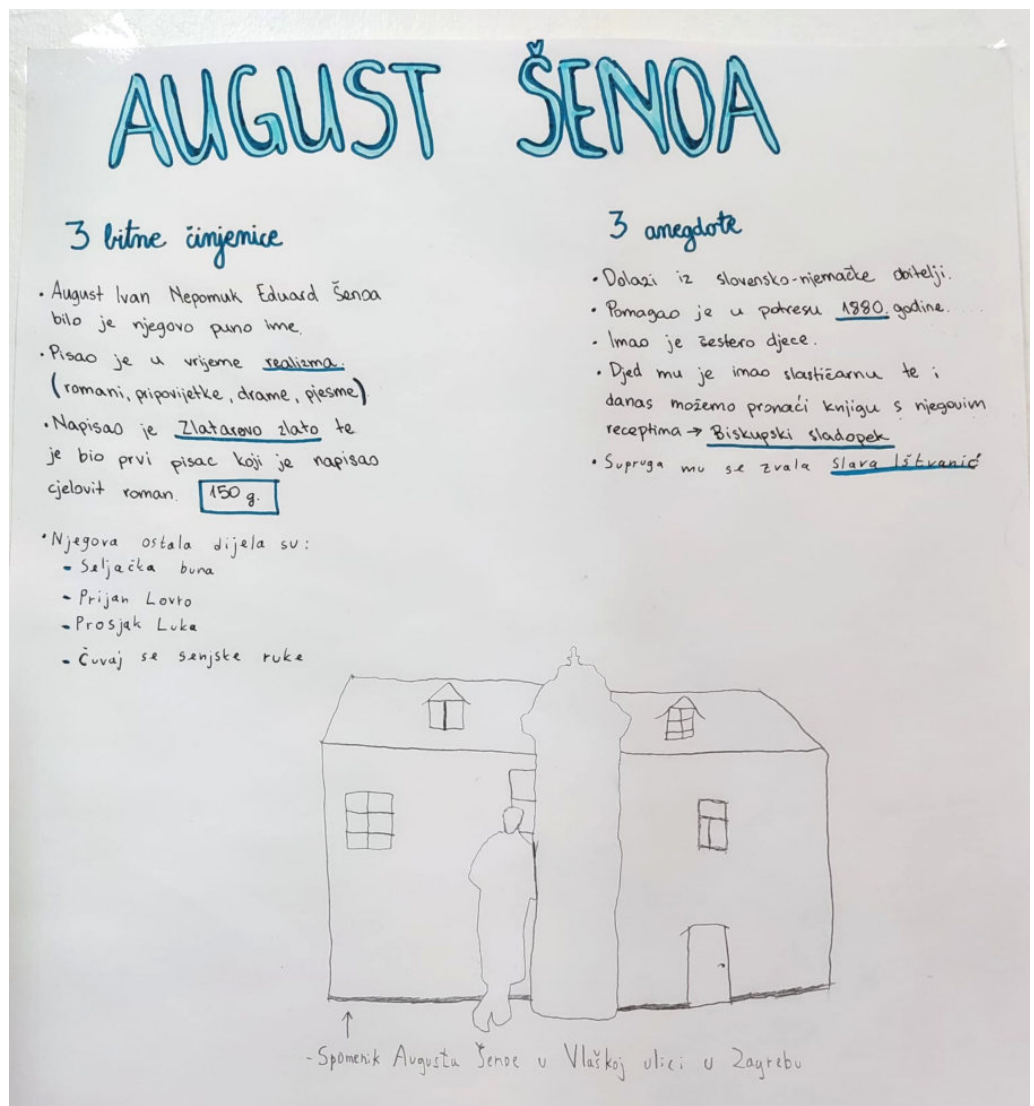 AUGUST ŠENOA
3 bitne činjenice
• August Ivan Nepomuk Eduard Šenoa
bilo je njegovo puno ime.
• Pisao je u vrijeme realizma.
(romani, pripovijetke, drame, pjesme)
• Napisao je Zlatarovo zlato te
je bio prvi pisac koji je napisao
cjelovit roman. 150 g.
• Njegova ostala dijela su:
- Seljačka buna
- Prijan Lovro
- Prosjak Luka
- Čuvaj se senjske ruke
3 anegdote
• Dolazi iz slovensko-njemačke obitelji.
• Pomagao je u potresu 1880. godine.
• Imao je šestero djece.
• Djed mu je imao slastičarnu te i
danas možemo pronaći knjigu s njegovim
receptima → Biskupski sladopek
• Supruga mu se zvala Slava Ištvanić
- Spomenik Augustu Šenoe u Vlaškoj ulici u Zagrebu